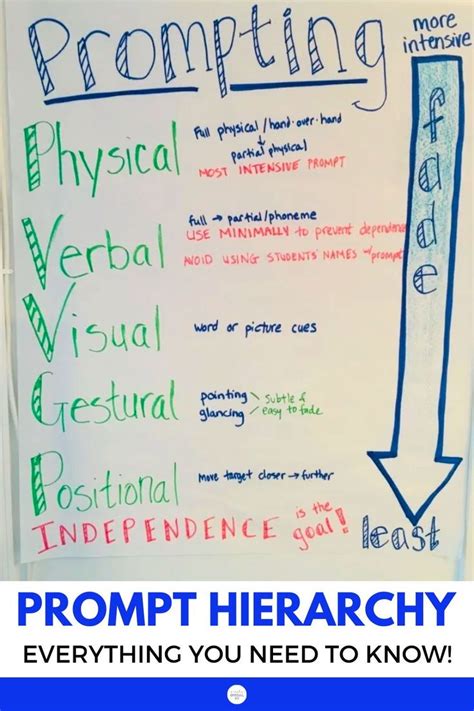 Prompting
more
intensive
fade
Physical
full physical / hand-over-hand
partial physical
MOST INTENSIVE PROMPT
Verbal
full → partial/phoneme
USE MINIMALLY to prevent dependence
AVOID USING STUDENTS' NAMES w/prompt
Visual
word or picture cues
Gestural
pointing
glancing
subtle &
easy to fade
Positional
move target closer → further
INDEPENDENCE is the goal!
least
PROMPT HIERARCHY
EVERYTHING YOU NEED TO KNOW!